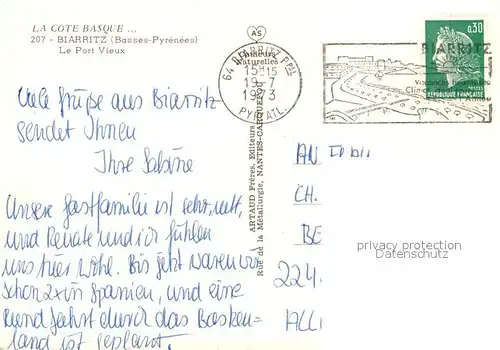 LA COTE BASQUE ...
207 - BIARRITZ (Basses-Pyrénées)
Le Port Vieux
AS
Couleurs
Naturelles
64 BIARRITZ PPAL
15H15
19-7
1973
PYR. ATL.
BIARRITZ
Vacances
0,30
POSTES
REPUBLIQUE FRANÇAISE
ARTAUD Frères, Editeurs
Rue de la Métallurgie, NANTES-CARQUEFOU
Viele Grüße aus Biarritz
sendet Ihnen
Ihre Sabine
Unsere Gastfamilie ist sehr nett,
und Renate und ich fühlen
uns hier wohl. Bis jetzt waren wir
schon 2x in Spanien, und eine
Rundfahrt durch das Basken=
land ist geplant.
AN
CH.
BE
224.
ALL
privacy protection